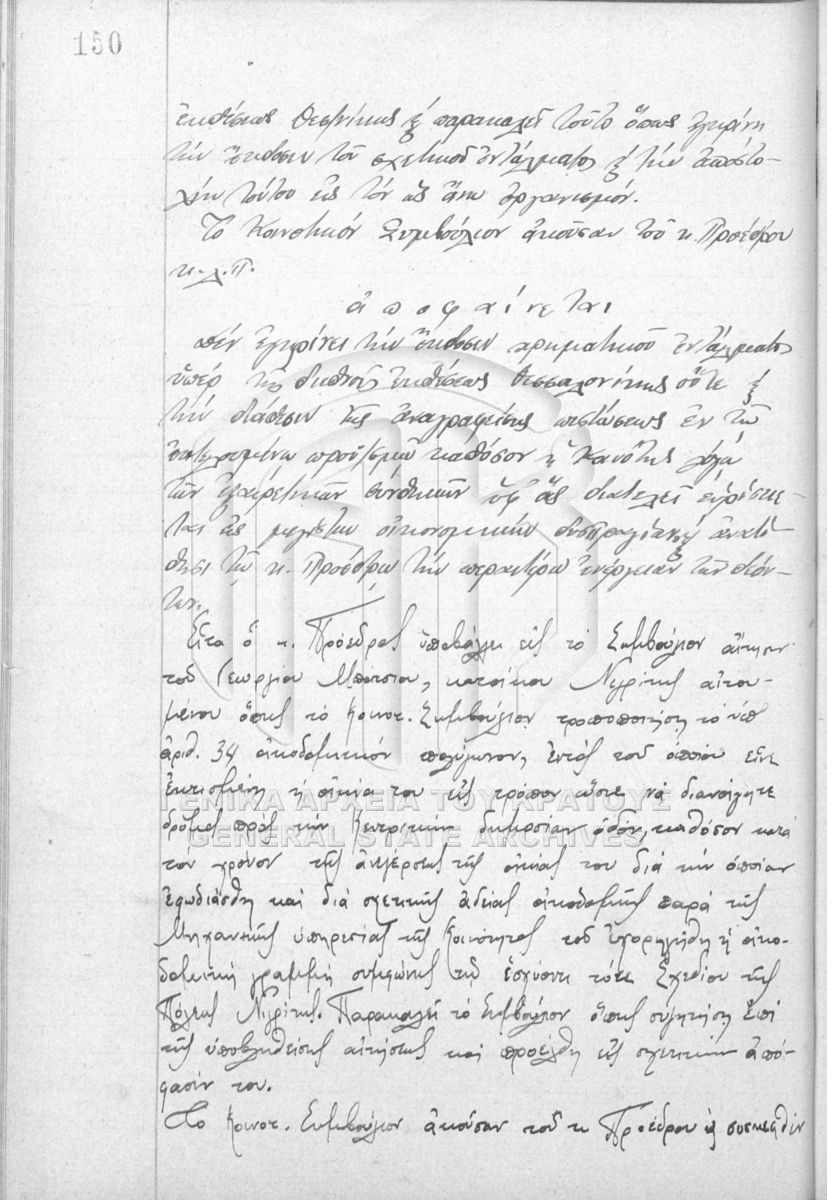 150
ἐκθέσεως Θεσ/νίκης & παρακαλεῖ τοῦτο ὅπως ἐγκρίνῃ
τὴν ἔκδοσιν τοῦ σχετικοῦ ἐντάλματος & τὴν ἀποστο-
λὴν τούτου εἰς τὸν ὡς ἄνω ὀργανισμόν.
Τὸ Κοινοτικόν Συμβούλιον ἀκοῦσαν τοῦ κ. Προέδρου
κ.λ.π.
ἀποφαίνεται
ἐγκρίνει τὴν ἔκδοσιν χρηματικοῦ ἐντάλματος
ὑπὲρ τῆς διεθνοῦς ἐκθέσεως Θεσσαλονίκης οὔτε &
τὴν διάθεσιν τῆς ἀναγραφείσης πιστώσεως ἐν τῷ
προϋπσμῷ καθόσον ἡ Κοινότης λόγῳ
τῶν ἐξαιρετικῶν συνθηκῶν ὑφ' ἃς διατελεῖ εὑρίσκε-
ται εἰς μεγίστην οἰκονομικὴν δυσπραγίαν & ἀνατί-
θησι τῷ κ. Προέδρῳ τὴν περαιτέρω ἐνέργειαν τῶν δεόν-
των.
Εἶτα ὁ κ. Πρόεδρος ὑποβάλλει εἰς τὸ Συμβούλιον αἴτησιν
τοῦ Γεωργίου Μπότσιου, κατοίκου Νιγρίτης αἰτου-
μένου ὅπως τὸ Κοινοτ. Συμβούλιον τροποποιήσῃ τὸ ὑπ'
ἀριθ. 34 οἰκοδομικὸν πολύγωνον, ἐντὸς τοῦ ὁποίου εἶνε
ἐκτισμένη ἡ οἰκία του εἰς τρόπον ὥστε νὰ διανοίγηται
δρόμος πρὸς τὴν Κεντρικὴν δημοσίαν ὁδόν, καθόσον κατὰ
τὸν χρόνον τῆς ἀνεγέρσεως τῆς οἰκίας του διὰ τὴν ὁποίαν
ἐφωδιάσθη καὶ διὰ σχετικῆς ἀδείας οἰκοδομῆς παρὰ τῆς
Μηχανικῆς ὑπηρεσίας τῆς Κοινότητος τοῦ ἐχορηγήθη ἡ οἰκο-
δομικὴ γραμμὴ συμφώνως τῷ ἰσχύοντι τότε Σχεδίου τῆς
Πόλεως Νιγρίτης. Παρακαλεῖ τὸ Συμβούλιον ὅπως συζητήσῃ ἐπὶ
τῆς ὑποβληθείσης αἰτήσεως καὶ προέλθῃ εἰς σχετικὴν ἀπό-
φασίν του.
Τὸ Κοινοτ. Συμβούλιον ἀκοῦσαν τοῦ κ. Προέδρου & συσκεφθὲν
ΓΕΝΙΚΑ ΑΡΧΕΙΑ ΤΟΥ ΚΡΑΤΟΥΣ
GENERAL STATE ARCHIVES